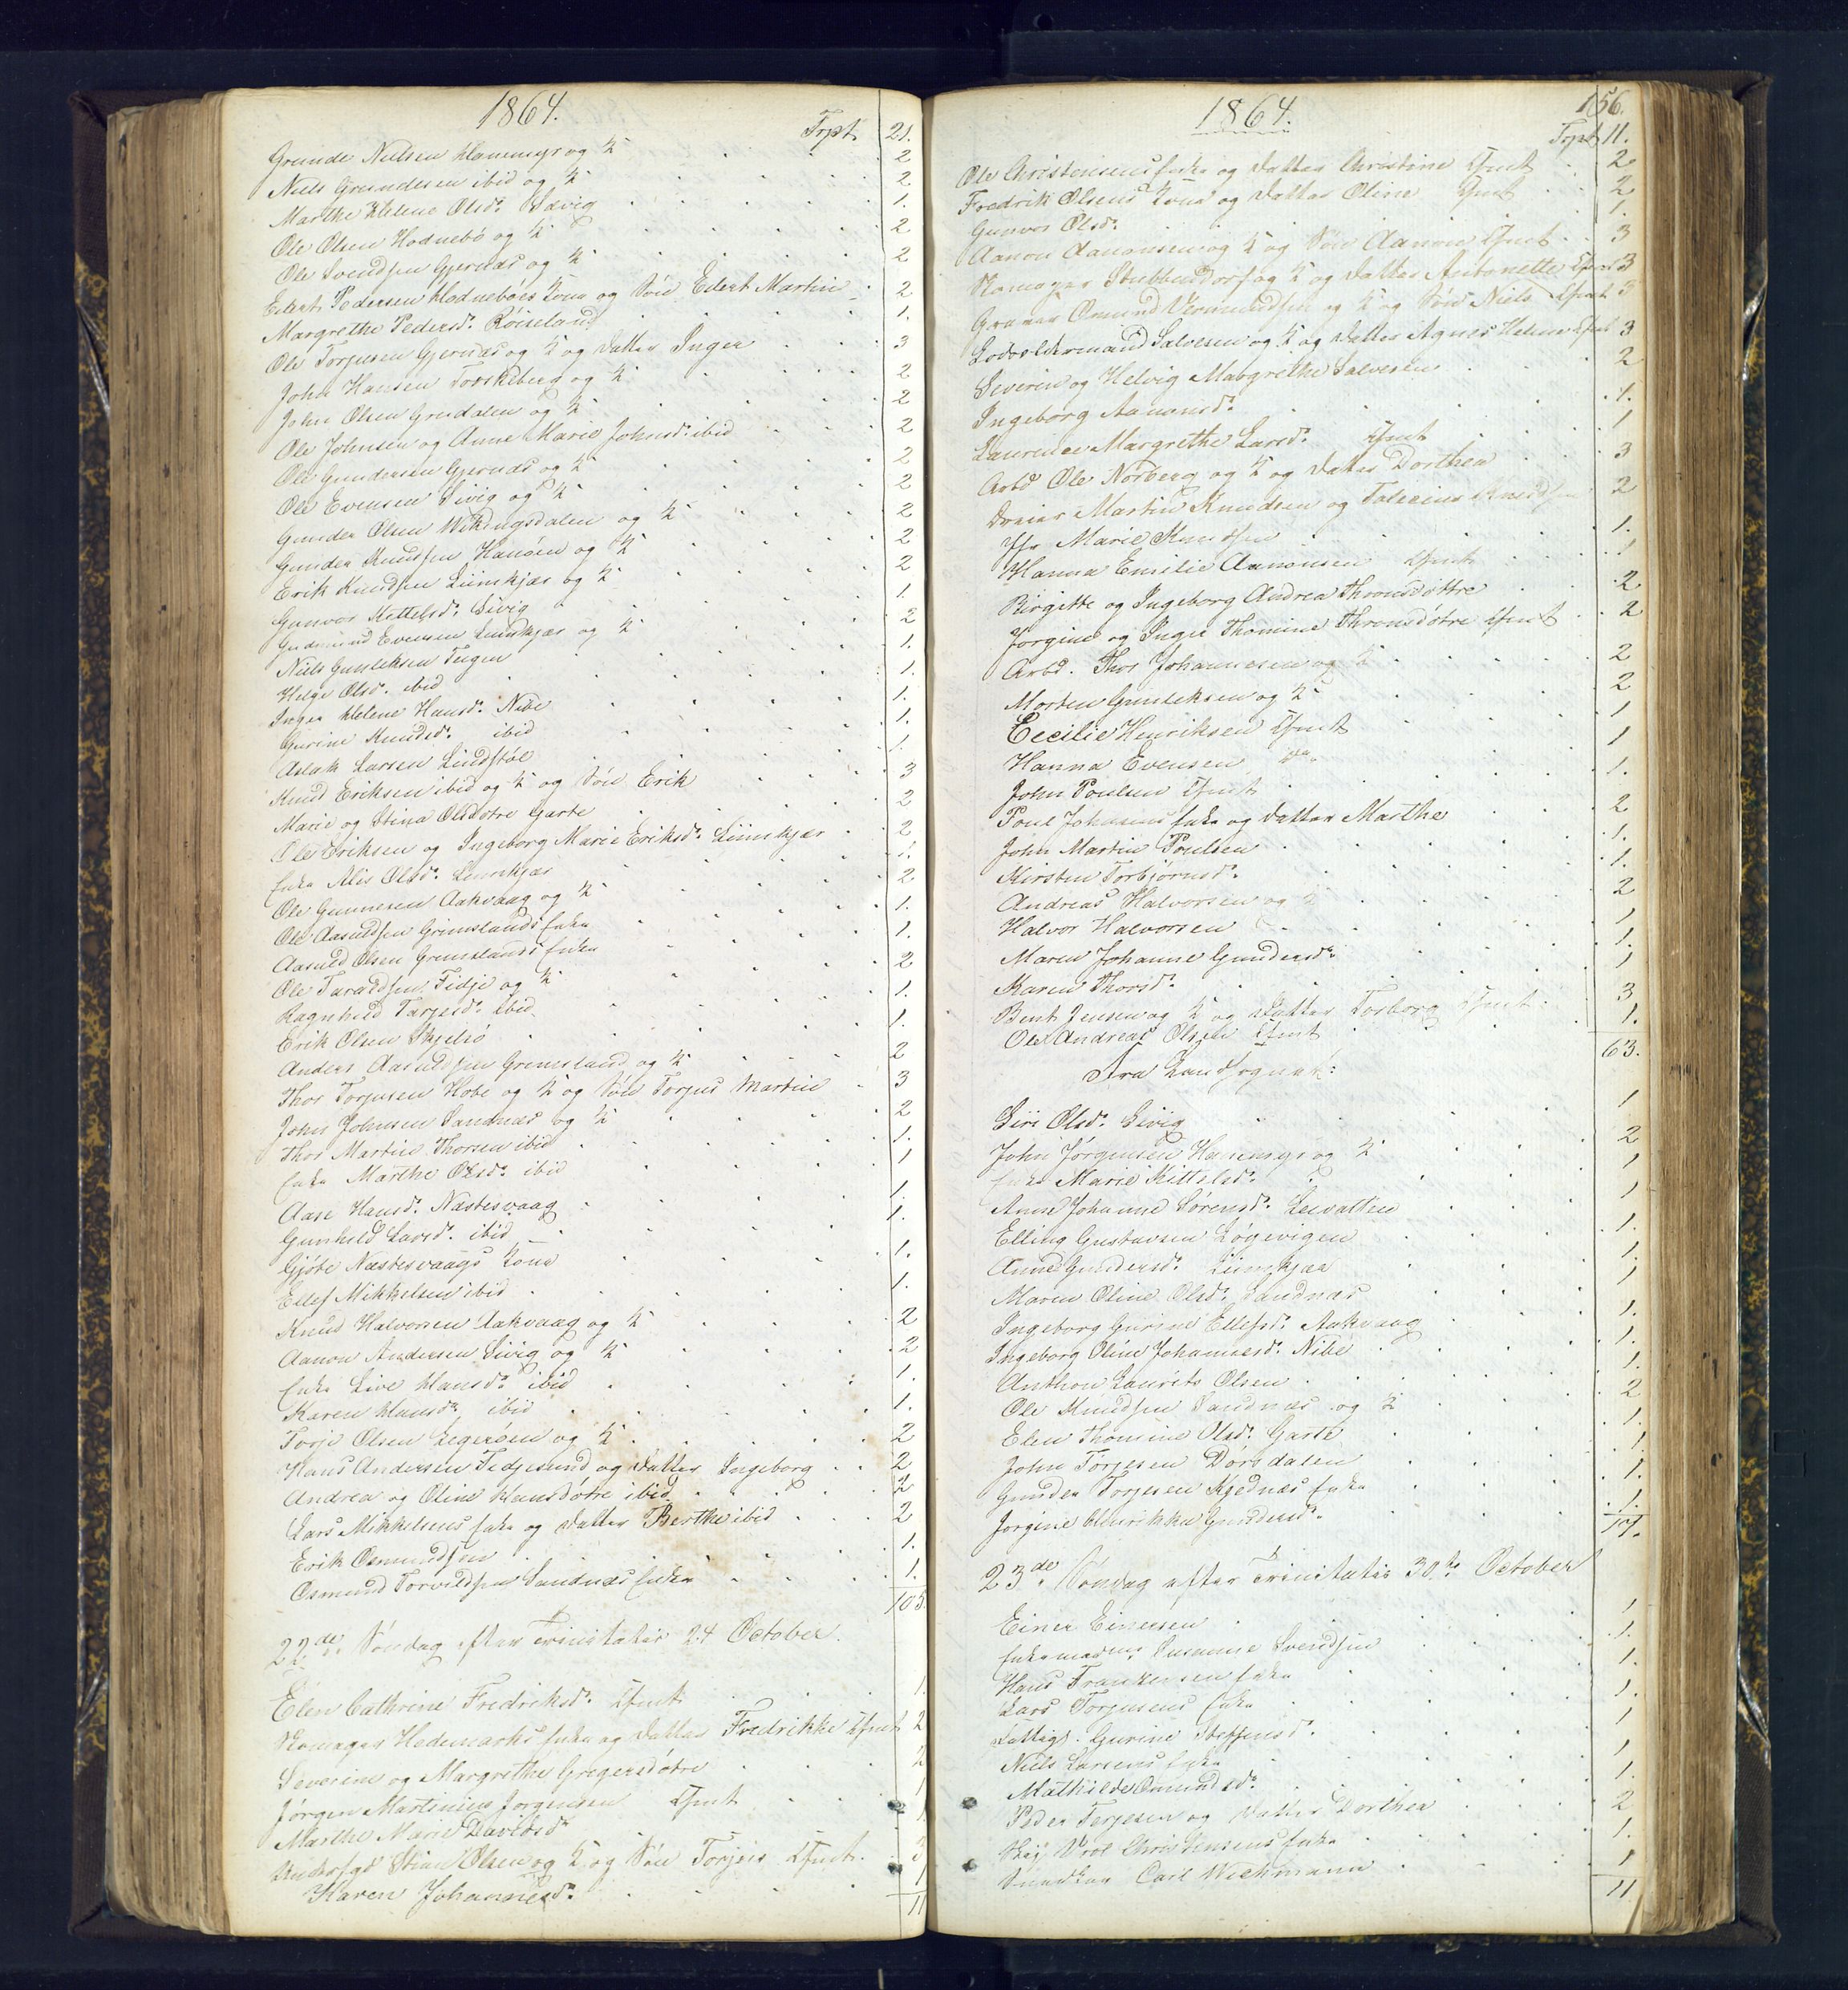 1864.
Trpt. 21.
Grunde Nielsen Hammyr og K. 2
Niels Grundesen ibid og K. 2
Marthe Helene Olsd. Sævig 1.
Ole Olsen Hodnebö og K. 2
Ole Svendsen Gjernæs og K. 2
Edert Pedersen Hodneböes Kone og Sön Edert Martin 2
Margrethe Pedersd. Röiseland 1.
Ole Torjusen Gjernæs og K. og Datter Inger 3
John Hansen Torskeberg og K. 2
John Olsen Grusdalen og K. 2
Ole Johnsen og Anne Marie Johnsd. ibid 2
Ole Gundersen Gjernæs og K. 2
Ole Evensen Sivig og K. 2
Gunder Olsen Wikingsdalen og K. 2
Gunder Knudsen Hanöen og K. 2
Erik Knudsen Liimkjær og K. 2
Gunvor Kittelsd. Sivig 1.
Gudmund Evensen Liimkjær og K. 2
Niels Gunleksen Teigen 1.
Helge Olsd. ibid 1.
Inger Helene Hansd. Nibe 1.
Gurine Knudsd. ibid 1.
Aslak Larsen Lindstöl 1.
Knud Eriksen ibid og K. og Sön Erik 3
Marie og Stina Olsdotre Garte 2
Ole Eriksen og Ingeborg Marie Eriksd. Liimkjær 2
Enke Alis Olsd. Liimkjær 1.
Ole Gunnersen Aakvaag og K. 2
Ole Aasuldsen Grimslands Enke 1.
Aasuld Olsen Grimslands Enke 1.
Ole Taraldsen Fidje og K. 2
Ragnhild Tarjesd. ibid 1.
Erik Olsen Skjelsö 1.
Anders Aasuldsen Grimsland og K. 2
Thor Torjusen Hobe og K. og Sön Torjus Martin 3
John Johnsen Sandnæs og K. 2
Thor Martin Thorsen ibid 1.
Enke Marthe Olsd. ibid 1
Aase Hansd. Næstesvaag 1.
Gunhild Larsd. ibid 1.
Gjöbe Næstesvaags Kone 1.
Ellef Mikkelsen ibid 1.
Knud Halvorsen Aakvaag og K. 2
Aanon Andersen Sivig og K. 2
Enke Live Hansd. ibid 1.
Karen Hansd. ibid 1.
Torje Olsen Legeröen og K. 2
Hans Andersen Fidjesund og Datter Ingeborg 2
Andrea og Oline Hansdotre ibid 2
Lars Mikkelsens Enke og Datter Berthe ibid 2
Erik Osmundsen 1.
Osmund Torvildsen Sandnæs Enke 1.
105.
22de Söndag efter Trinitatis 24 October.
Elen Cathrine Fredriksd. Cfmt 1.
Skomager Hedemarks Enke og Datter Fredrikke Cfmt 2
Severine og Margrethe Gregersdötre 2
Jörgen Martinius Jörgensen Cfmt 1
Marthe Marie Davidsd. 1
Stian Olsen og K. og Sön Torjus Cfmt. 3
Karen Johannesd. 1
11
1864.
156.
Trpt 11.
Ole Christensens Enke og Datter Christine Cfmt 2
Fredrik Olsens Kone og Datter Oline Cfmt 2
Gunvor Olsd. 1.
Aanon Aanonsen og K. og Sön Aanon Cfmt. 3
Skomager Stubbendorf og K. og Datter Antonette Cfmt 3
Osmund Vermundsen og K. og Sön Niels Cfmt 3
Lods Salvesen og K. og Datter Agnes Helene Cfmt 3
Severin og Helvig Margrethe Salvesen 2
Ingeborg Aanonsd. 1.
Laurence Margrethe Larsd. Cfmt 1
Arbd Ole Norberg og K. og Datter Dorthea 3
Dreier Martin Knudsen og Knudsen 2
Jfr Marie Knudsen 1.
Hanna Emilie Aanonsen Cfmt 1
Birgitte og Ingeborg Andrea Thronsdöttre 2
Jörgine og Inger Thomine Thronsdötre Cfmt 2
Arbd. Thor Johannesen og K. 2
Morten Gunleksen og K. 2
Cecilie Henriksen Cfmt 1
Hanna Evensen 1
John Poulsen Cfmt 1.
Poul Johnsens Enke og Datter Marthe 2
John Martin Poulsen 1.
Kirsten Torbjörnsd. 1.
Andreas Halvorsen og K. 2
Halvor Halvorsen 1
Maren Johanne Gundersd. 1.
Karen Thorsd. 1
Bent Jensen og K. og Datter Torborg Cfmt. 3
Ole Andreas Olsen Cfmt 1.
63.
Fra Landsognet:
Siri Olsd. Sivig 1
John Jörgensen Hammyr og K. 2
Enke Marie Kittelsd. 1
Anne Johanne Sörensd. Leivatten 1
Elling Gustavsen Lögevigen 1.
Anne Gundersd. Liimkjær 1
Maren Oline Olsd. Sandnæs 1
Ingeborg Gurine Ellefsd. Aakvaag 1.
Ingeborg Oline Johannesd. Nibe 1.
Anthon Laurits Olsen 1.
Ole Knudsen Sandnæs og K. 2
Elen Thomine Olsd. Garte 1.
John Torjesen Dörsdalen 1.
Gunder Torjesen Kjednæs Enke 1.
Jörgine Henrikke Gundersd. 1.
17.
23de Söndag efter Trinitatis 30te October
Einer Einersen 1
Enkemadm. Susanne Svendsen 1.
Hans Frankensen Enke 1.
Lars Torjusens Enke 1.
Fattigl. Gurine Steffensd. 1
Niels Larsens Enke 1
Mathilde Osmundsd. 1.
Peder Terjesen og Datter Dorthea 2
Christensens Enke 1.
Snedker Carl Wichmann 1
11